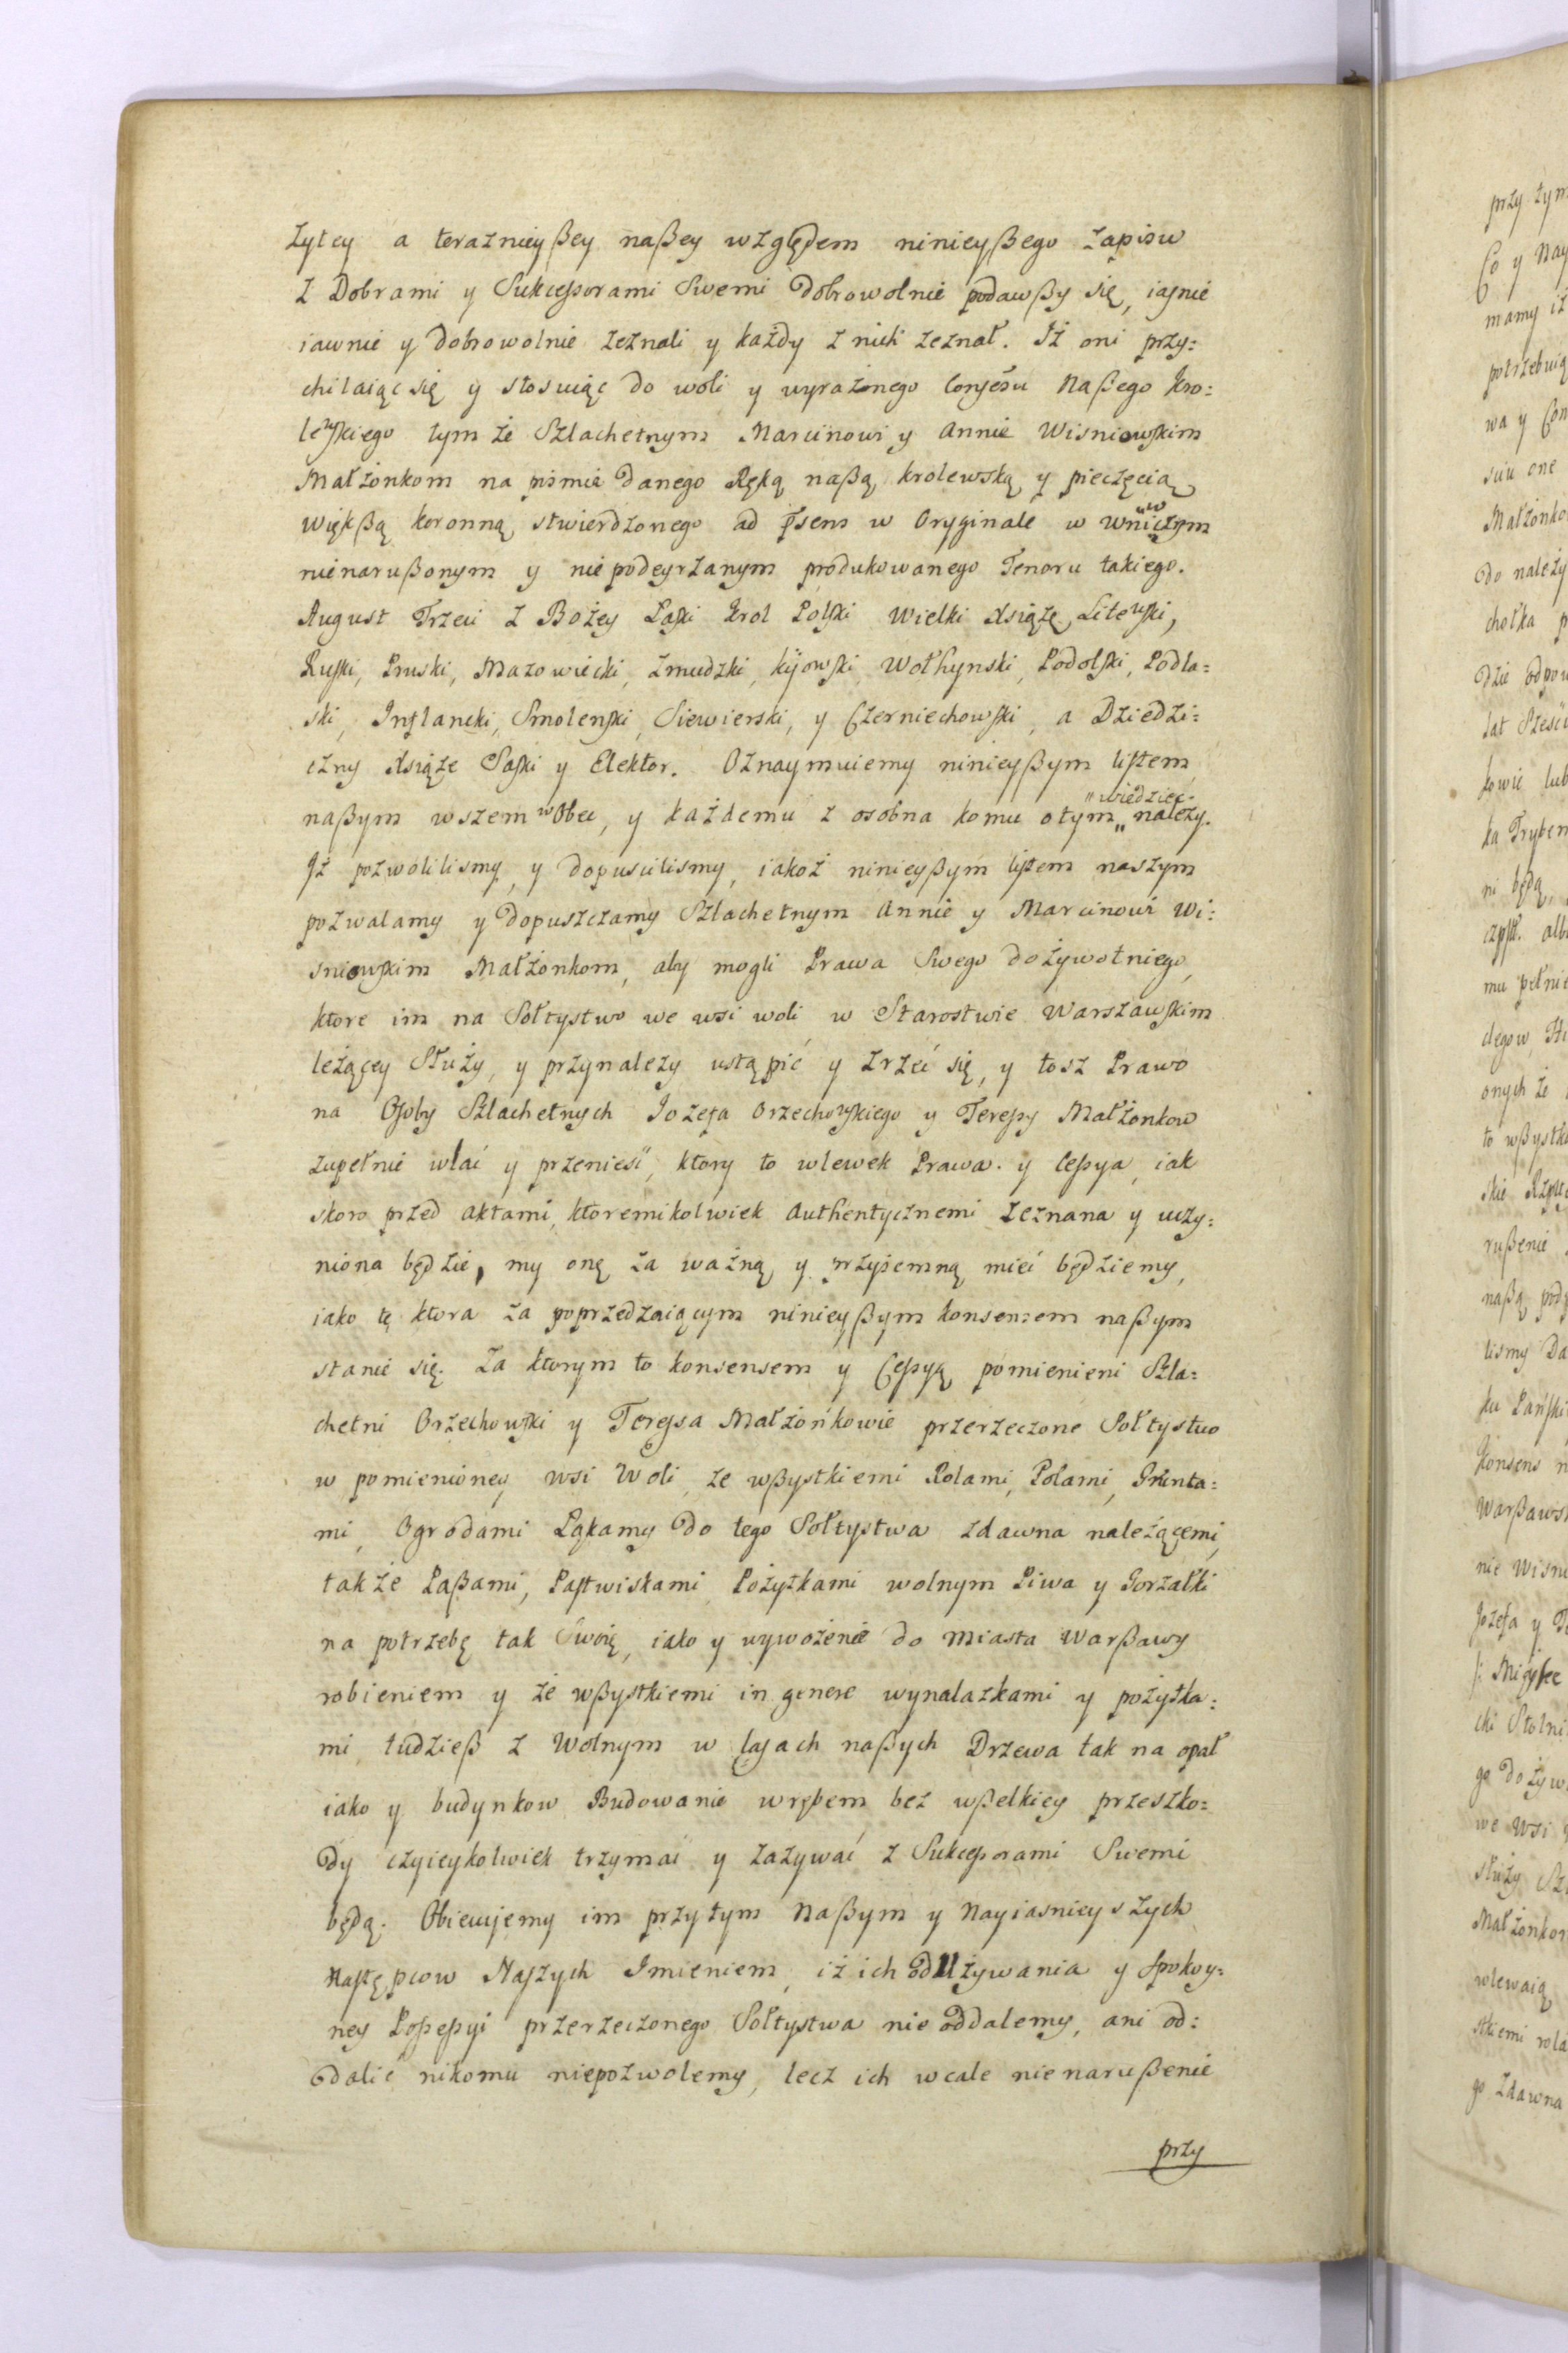 żytey a teraznieyßey naßey względem ninieyßego zapisu
z Dobrami y Sukcessorami Swemi Dobrowolnie podawßy się, iasnie
iawnie y Dobrowolnie zeznali y każdy z nich zeznał. Iż oni przy=
chilaiąc się y stosuiąc do woli y wyrażonego Consesu Naßego Kro=
lewskiego tym że Szlachetnym Marcinowi y Annie Wisniowskim
Małżonkom na pismie Danego Ręką naßą krolewską y pieczęcią
więkßą koronną stwierdzonego ad Psens w Oryginale w wniczym
nienarußonym y nie podeyrzanym produkowanego Tenoru takiego.
August Trzeci z Bożey Łaski Krol Polski Wielki Xsiążę Litewski,
Ruski, Pruski, Mazowiecki, Zmudzki, Kijowski, Wołhynski, Podolski, Podla=
ski, Inflancki, Smolenski, Siewierski, y Czerniechowski, a Dziedzi=
czny Xsiąże Saski y Elektor. Oznaymuiemy ninieyßym listem
naßym wszem w Obec, y każdemu z osobna komu o tym "wiedziec" należy.
Iż pozwolilismy, y dopuscilismy, iakoż ninieyßym listem naszym
pozwalamy y Dopuszczamy Szlachetnym Annie y Marcinowi Wi=
sniowskim Małżonkom, aby mogli Prawa Swego dożywotniego,
ktore im na Sołtystwo we wsi woli w Starostwie Warszawskim
leżącey Służy, y przynależy ustąpić y zrzec się, y tosz Prawo
na Osoby Szlachetnych Iozefa Orzechowskiego y Teressy Małżonkow
zupełnie wlać y przenieść, ktory to wlewek Prawa. y Cessya, iak
skoro przed aktami, ktoremikolwiek Authentycznemi zeznana y uczy=
niona będzie, my onę za ważną y przyiemną mieć będziemy,
iako tę ktora za poprzedzaiącym ninieyßym konsensem naßym
stanie się. Za ktorym to konsensem y Cessyą pomienieni Szla=
chetni Orzechowski y Teressa Małżonkowie przerzeczone Sołtystwo
w pomienioney wsi Woli, ze wßystkiemi Rolami, Polami, Grunta=
mi, Ogrodami Łąkamy Do tego Sołtystwa zdawna należącemi,
także Paßami, Pastwiskami Pożytkami wolnym Piwa y Gorzałki
na potrzebę tak Swoię, iako y wywożenie do Miasta Warßawy
robieniem y ze wßystkiemi in genere wynalazkami y pożytka=
mi, tudzieß z Wolnym w lasach naßych Drzewa tak na opał
iako y budynkow Budowanie wrębem, bez wßelkiey przeszko=
dy czyieykolwiek trzymać y zażywać z Sukcessorami Swemi
będą. Obiecujemy im przytym Naßym y Nayiasnieyszych
Następcow Naszych Imieniem, iż ich od Używania y Spokoy=
ney Possessyi przerzeczonego Sołtystwa nie oddalemy, ani od=
dalić nikomu niepozwolemy, lecz ich wcale nienarußenie
przy
przy tym
Co y Nay
mamy iż
potrzebuią
wa y Con
sciu one
Małżonko
do należy
chołka p
dzie odpow
kowie lub
ni będą,
mu pełnie
onych że
to wßystk
rußenie
naßą podp
lismy Da
ku Pański
Konsens n
Warßaws
nie Wisni
Jozefa y T
cki Stolni
go dożyw
we wsi
służy Sz
Małżonkom
wlewaią
stkiemi rola
go zdawna